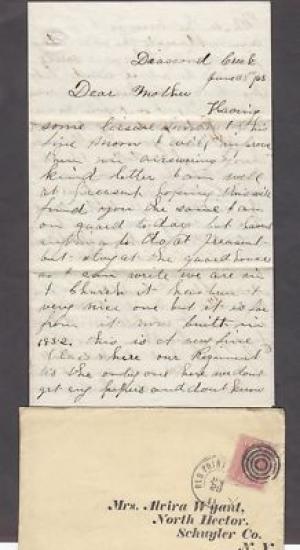 Diascond Creek
June 18 / 63
Dear Mother
Having
some leisure this
fine I will improve
them in answering
kind letter I am well
at Preasent hopeing this will
find you the same I am
on guard to day but havent
anything to do at Preasent
but stay at the guard house
so I can write we are in
a Church it has been a
very nice one but it is far
from it now built in
1832. this is a very fine
Place where our Regiment
is the only one here we dont
get any papers and dont know
OLD POINT
Mrs. Alvira Wyant,
North Hector.
Schuyler Co.
N. Y.